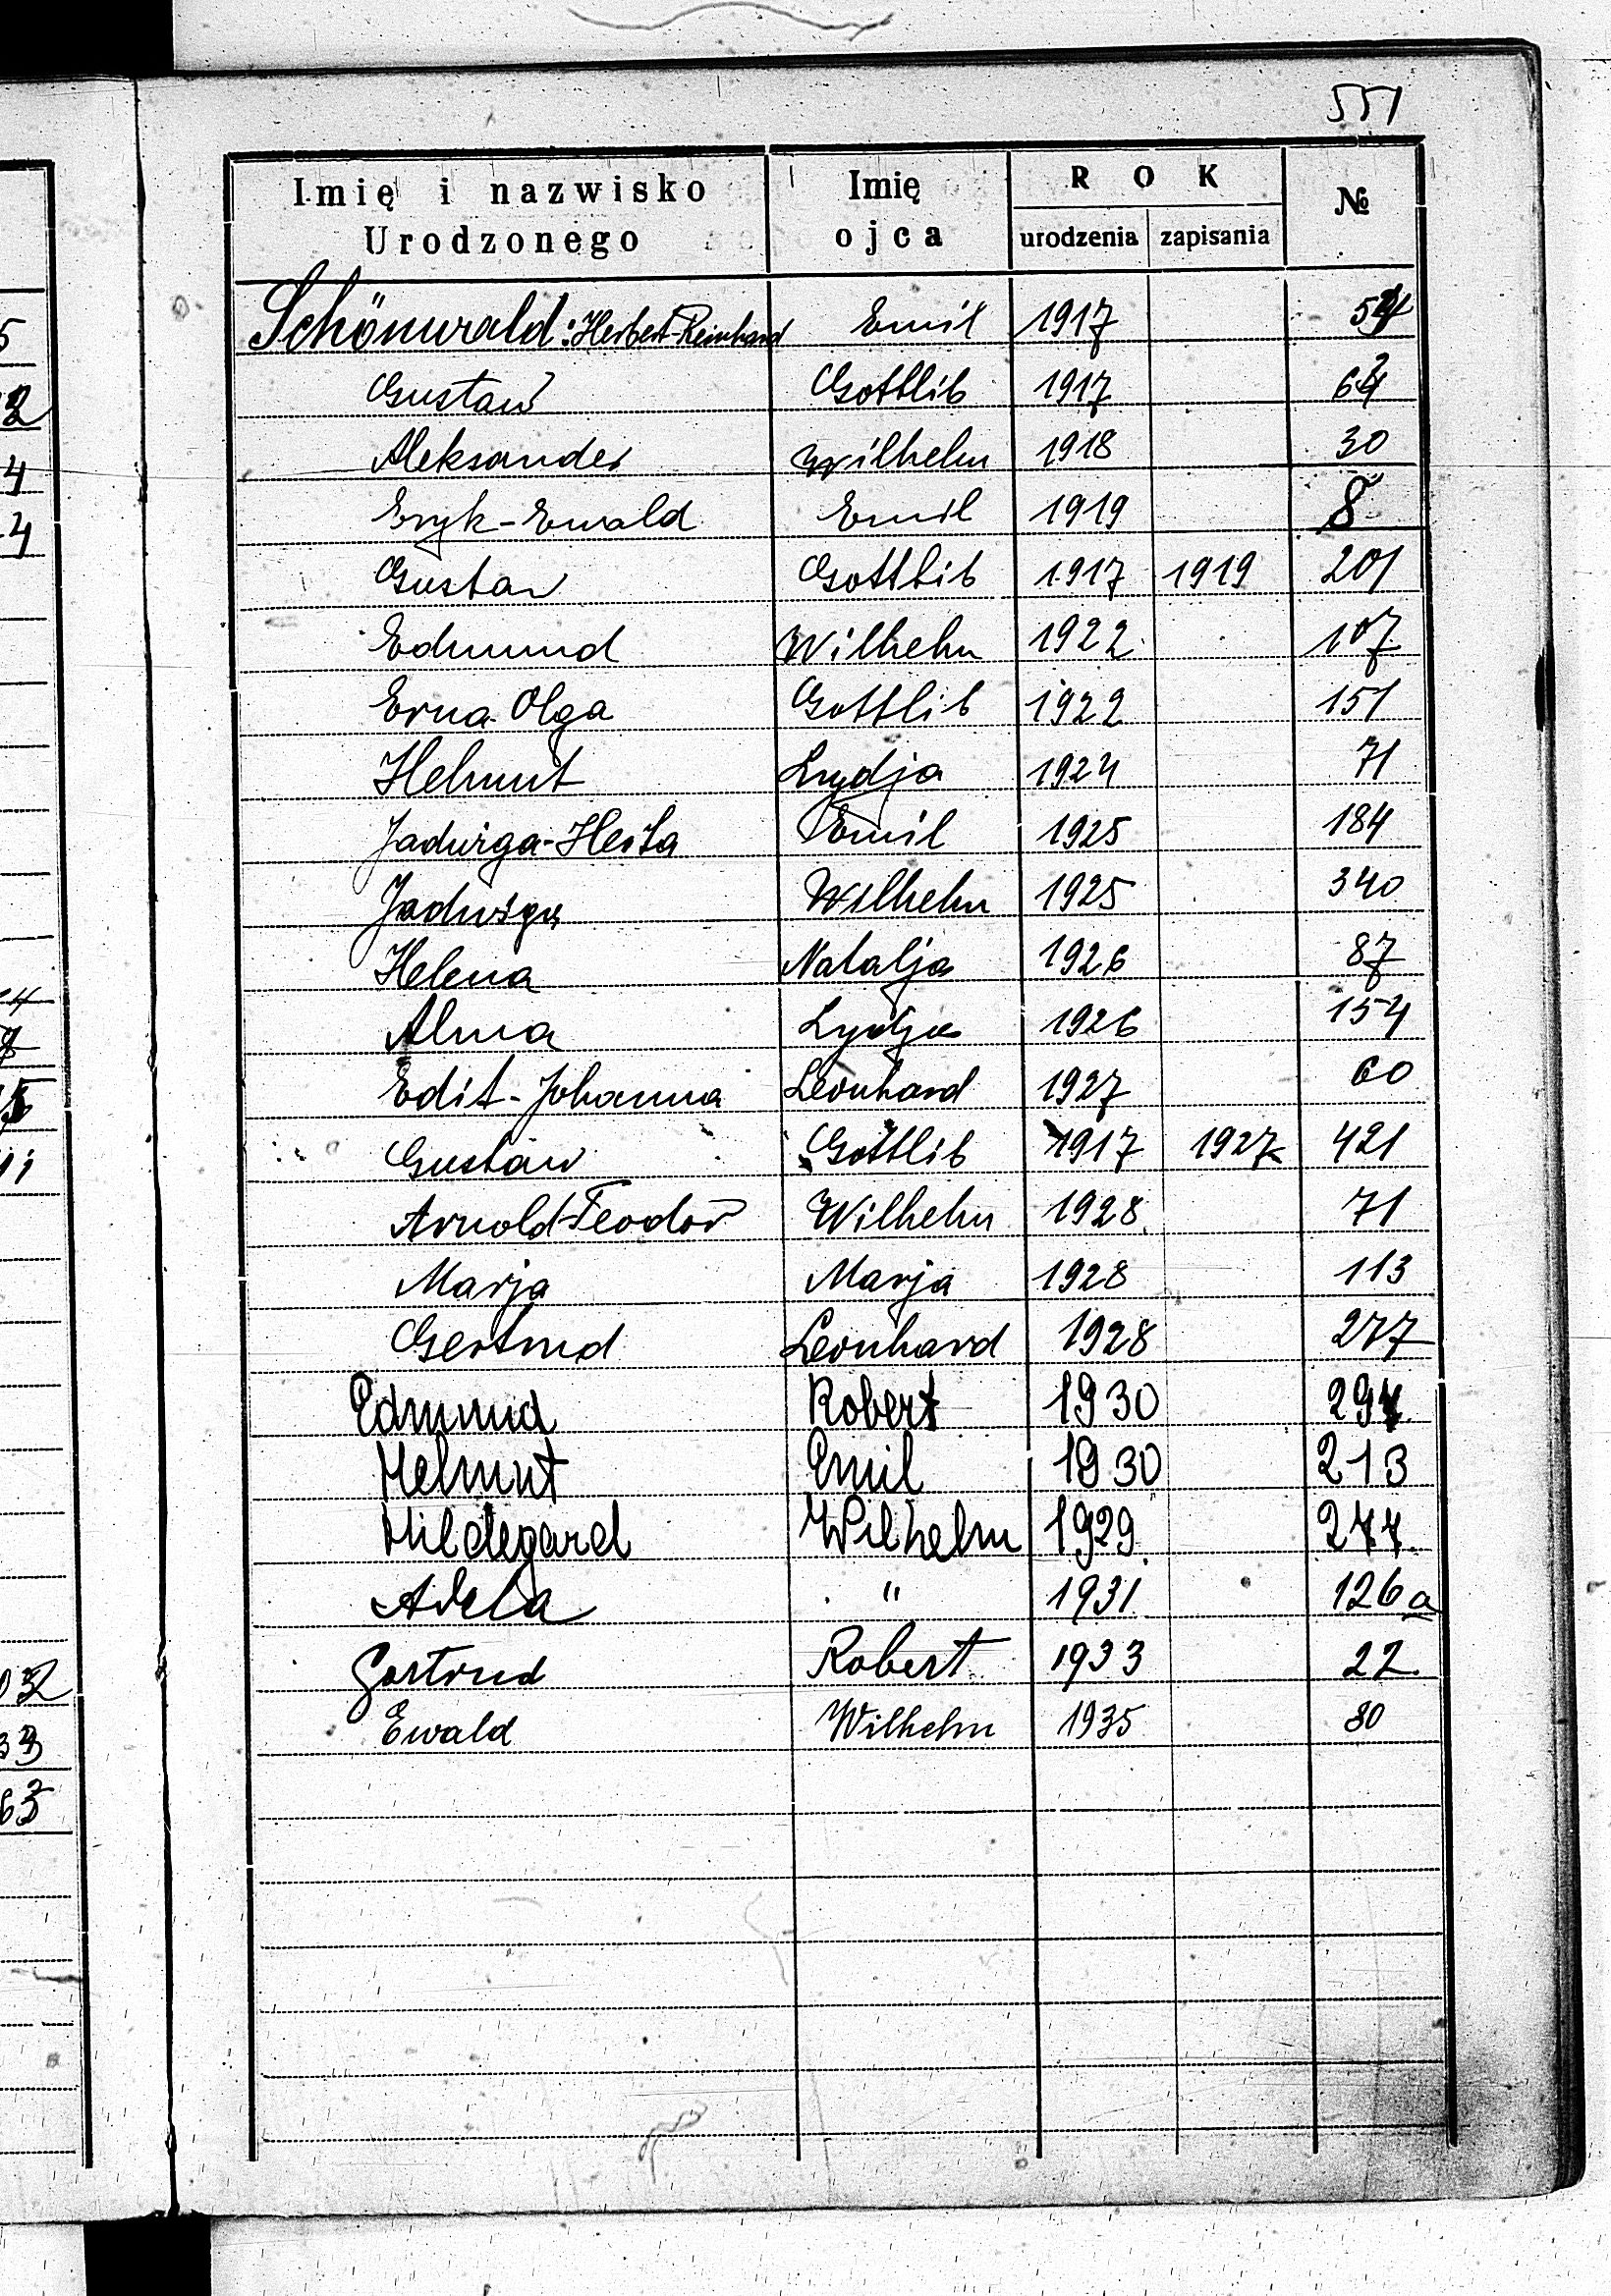 551
Imię i nazwisko Urodzonego Imię ojca ROK urodzenia zapisania №
Schönwald: Herbert-Reinhard Emil 1917
Gustaw Gottlib 1917
Aleksander Wilhelm 1918 30
Eryk-Ewald Emil 1919 8
Gustaw Gottlib 1917 1919 201
Edmund Wilhelm 1922 107
Erna Olga Gottlib 1922 151
Helmut Lydja 1924 71
Jadwiga-Herta Emil 1925 184
Jadwiga Wilhelm 1925 340
Helena Natalja 1926 87
Alma Lydja 1926 154
Edit-Johanna Leonhard 1927 60
Gustaw Gottlib 1917 1927 421
Arnold-Teodor Wilhelm 1928 71
Marja Marja 1928 113
Gertrud Leonhard 1928 277
Edmund Robert 1930
Helmut Emil 1930 213
Hildegard Wilhelm 1929. 277.
Adela " 1931 126a
Gertrud Robert 1933 22
Ewald Wilhelm 1935 80